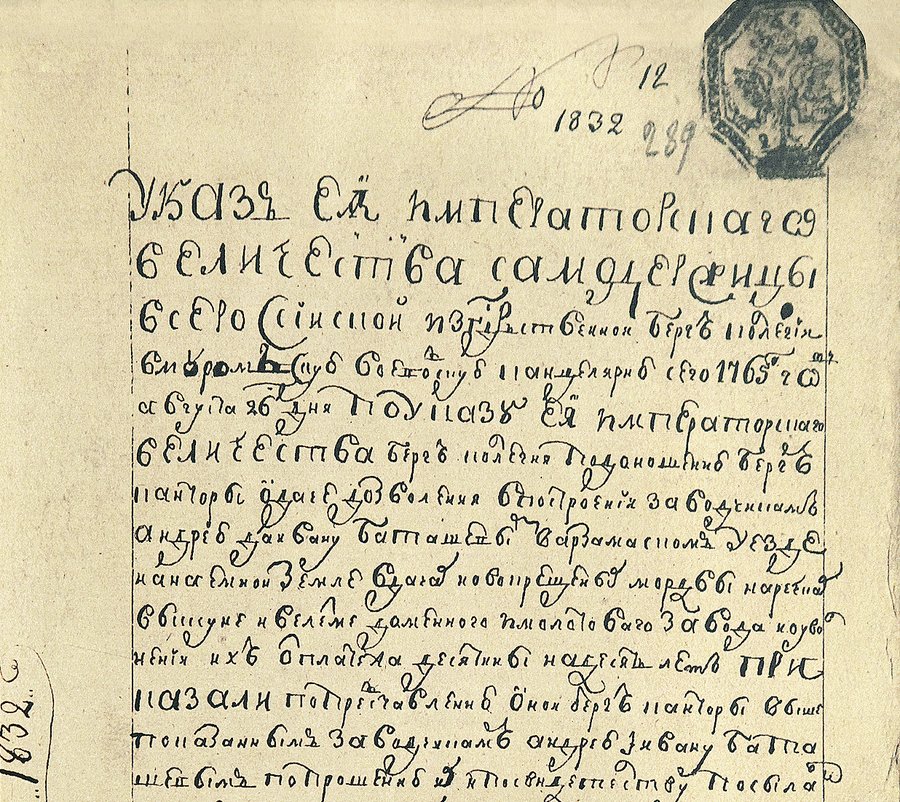 № 12
1832 289
УКАЗЪ ЕЯ ИМПЕРАТОРСКАГО
ВЕЛИЧЕСТВА САМОДЕРЖИЦЫ
ВСЕРОССІЙСКОЙ изъ государственной бергъ колегіи
в муромскую воеводскую канцелярию сего 1765 г
августа 26 дня ПО УКАЗУ ЕЯ ИМПЕРАТОРСКАГО
ВЕЛИЧЕСТВА бергъ колегия по доношению бергъ
канторы о даче дозволения в построении заводчикам
андрею да ивану баташевым в арзамаском уезде
на наемной земле в дачах новокрещеных мордвы на речках
в выксуне и велетме доменного и молотоваго завода и о уволь
нении их от платежа десятины на десять летъ ПРИ
КАЗАЛИ по представлению оной бергъ канторы выше
показанным заводчикам андрею и ивану бата
шевым по прошению и по свидетельству